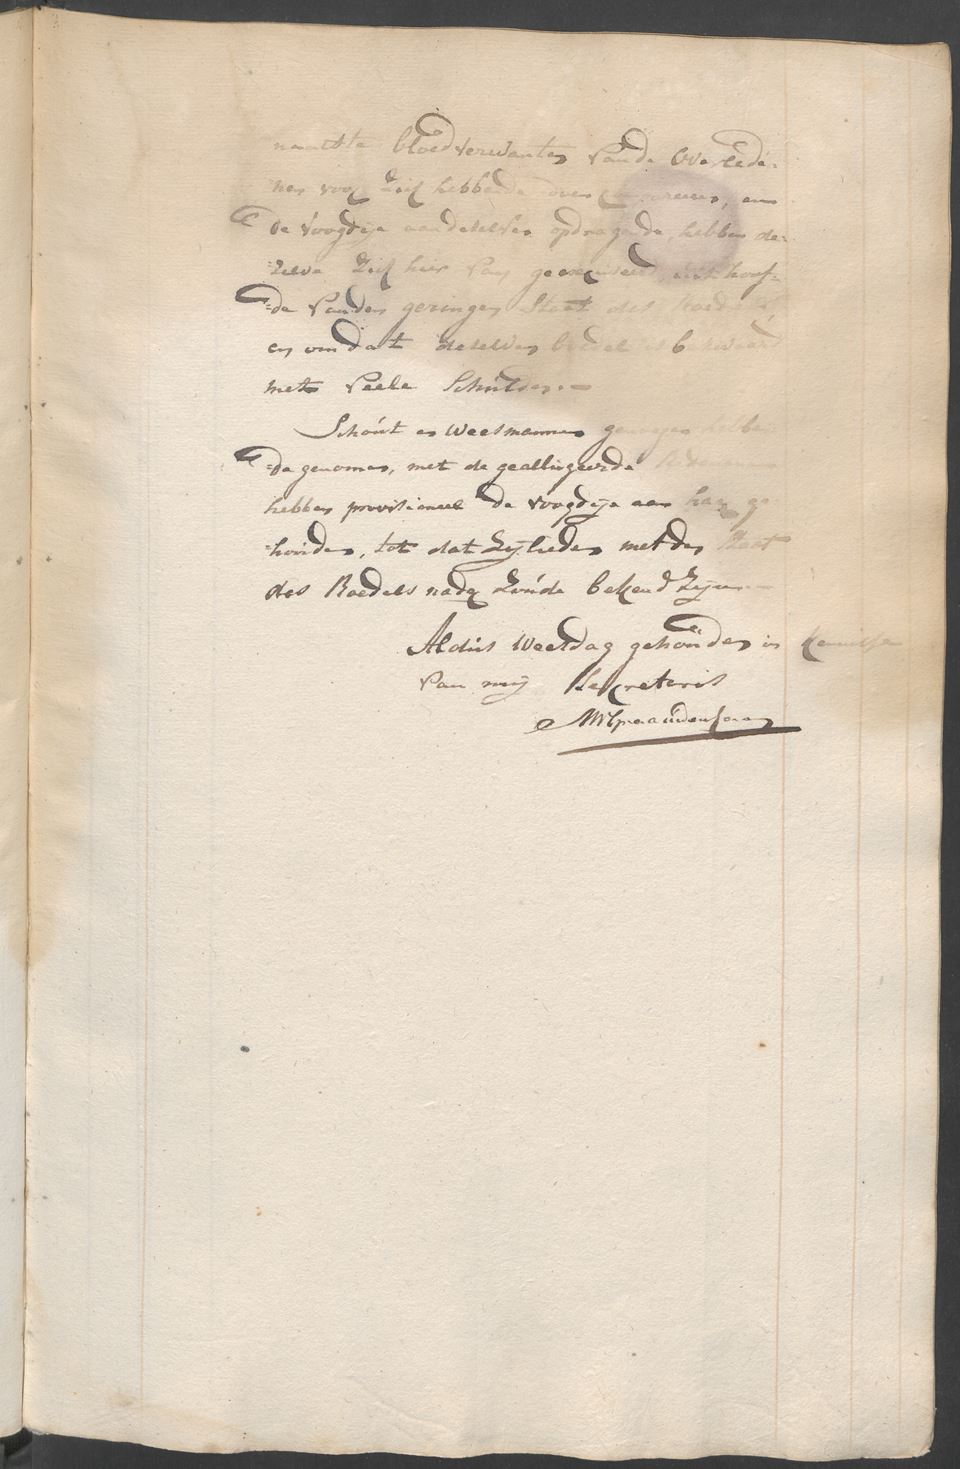 naaste bloedverwanten van de Overlede-
nen voor zich hebbende doen compareeren, en
de voogdije aan deselven opdragende, hebben de-
zelve zich hier van geexcuseerd, uit hoof-
de van den geringen Staat des Boedels,
en omdat deselven boedel is bezwaard
met veele Schulden.
Schout en Weesmannen genoegen hebben-
de genomen, met de geallegeerde Redenen
hebben provisioneel de voogdije aan haar ge-
houden, tot dat zijlieden met den Staat
des Boedels nader zoude bekend zijn
Aldus Weesdag gehouden in kennisse
van mij Secretaris